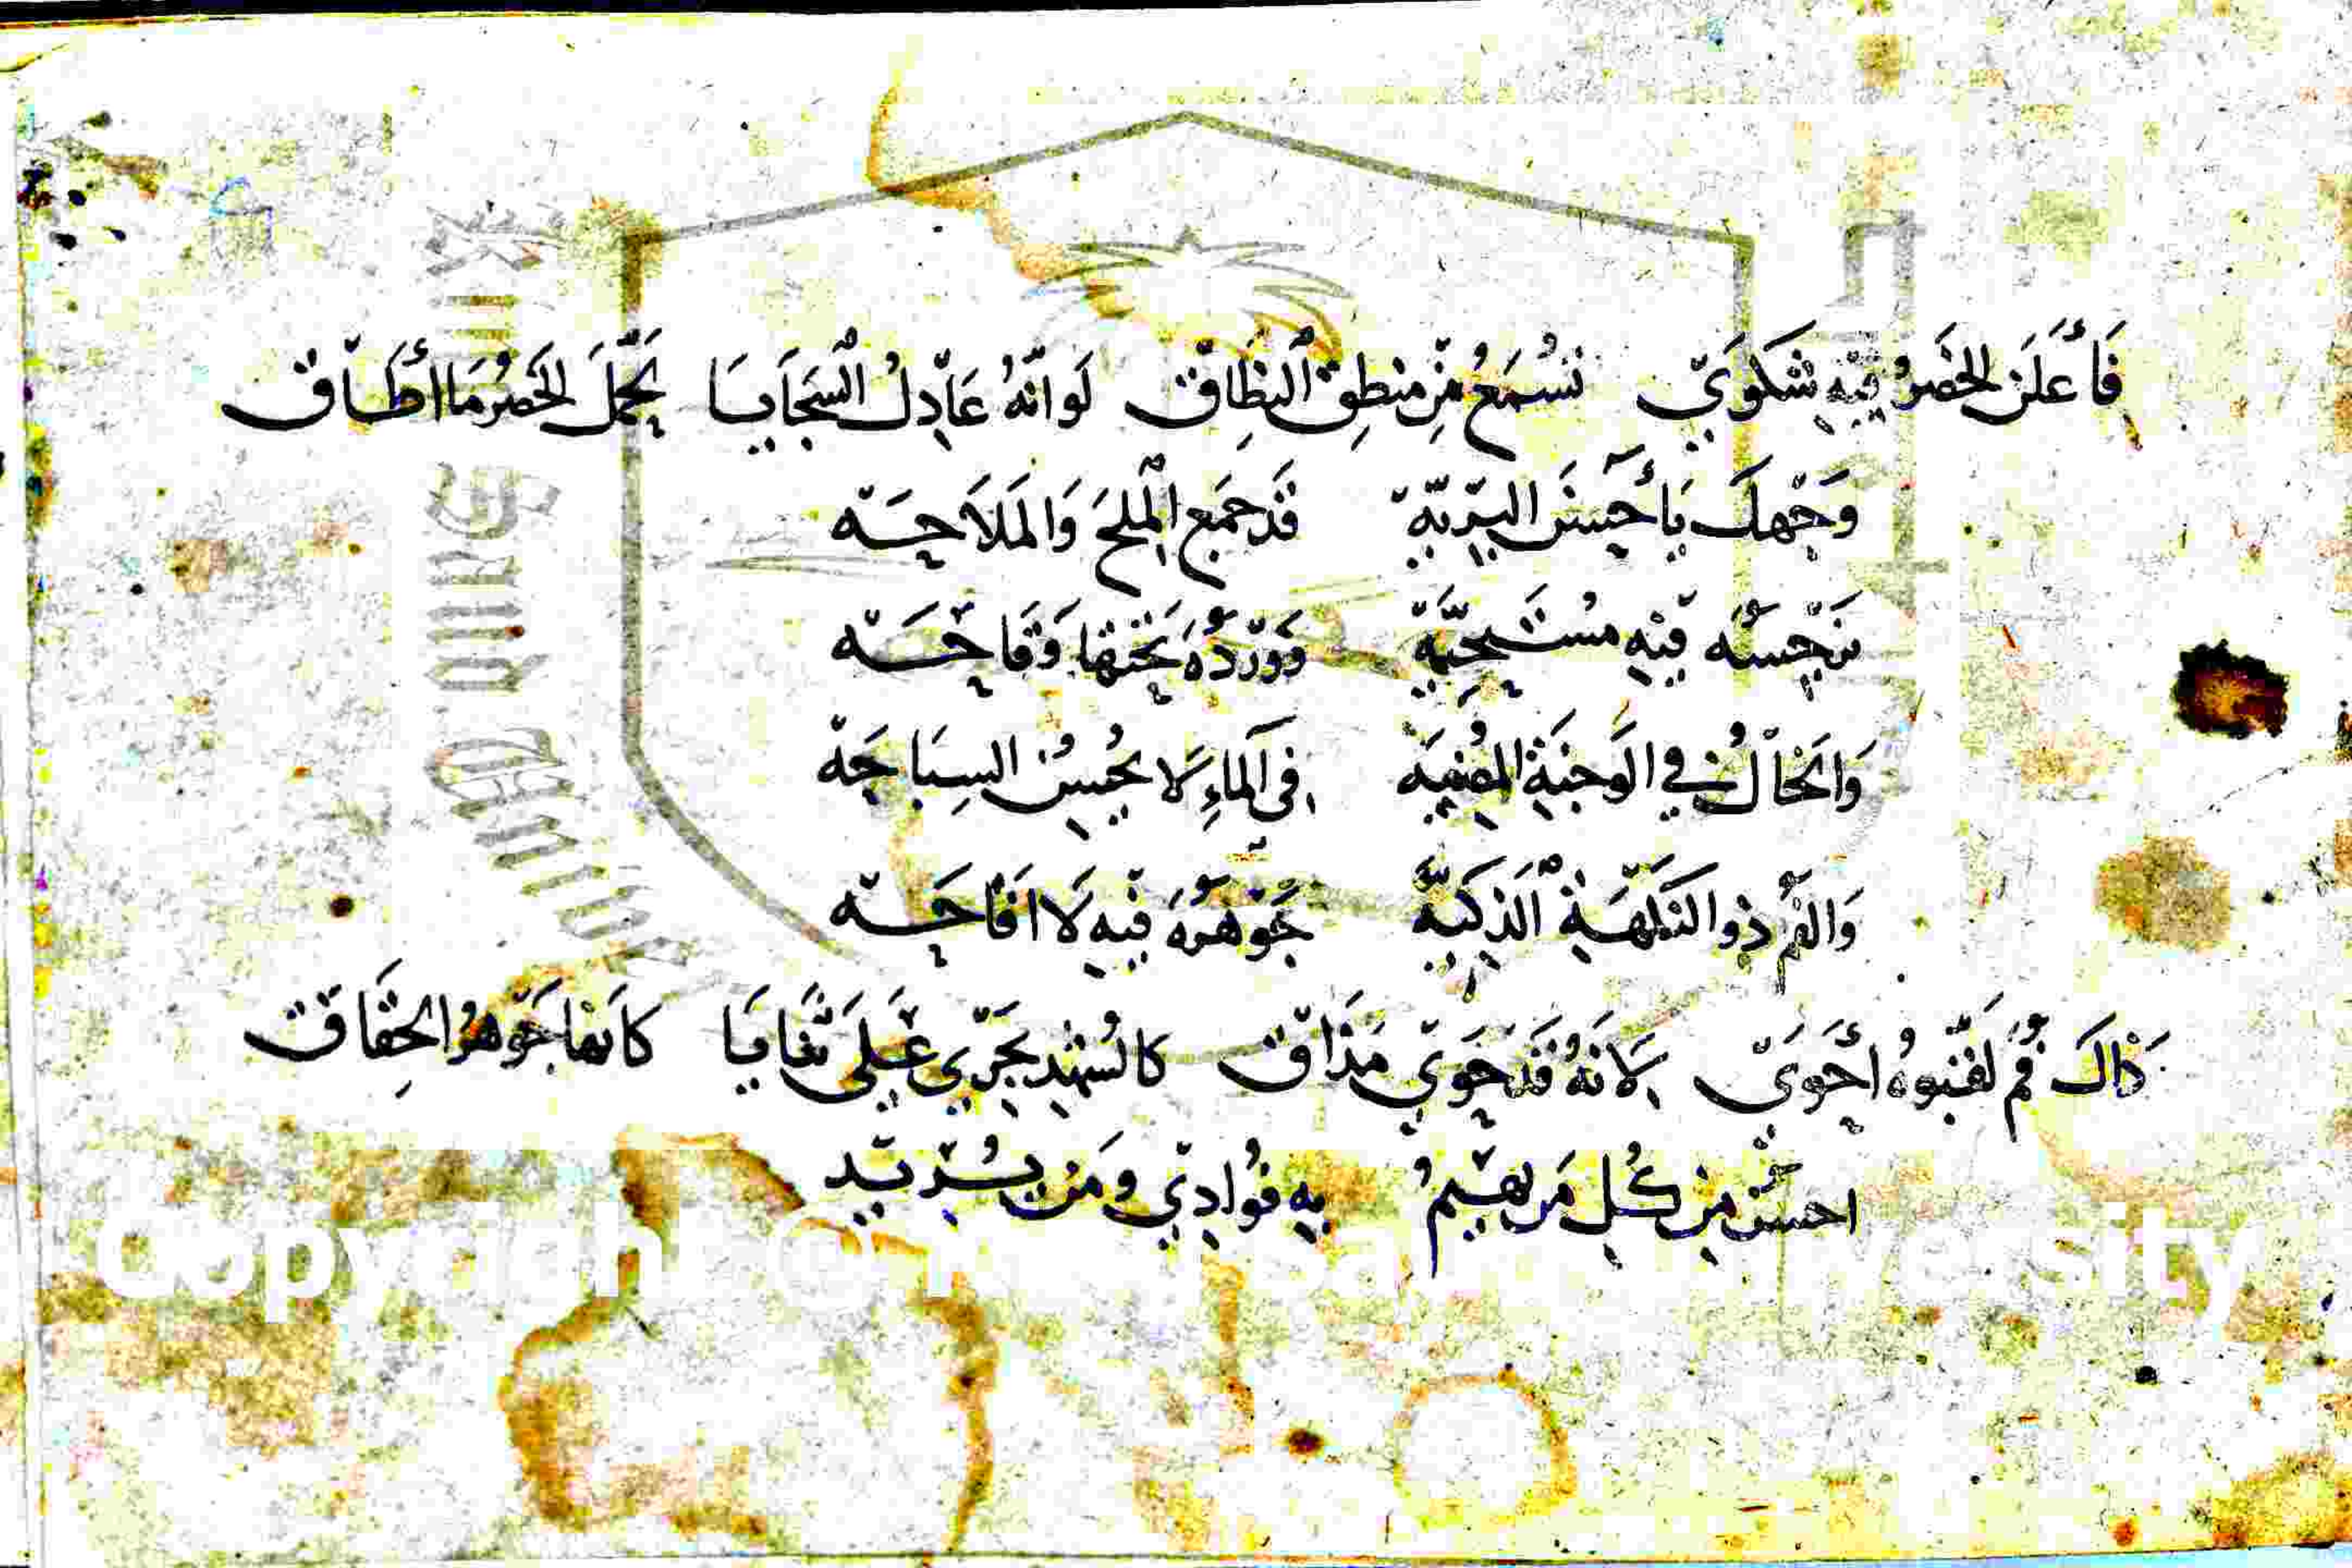 فَأَعْلَنَ الخَصْرُ فِيهِ شَكْوَى نَسْمَعُ مِنْ مَنْطِقِ النِّطَاقْ لَوْ أَنَّهُ عَادِلُ السَّجَايَا يَحْمِلُ الخَصْرُ مَا أَطَاقْ
وَجْهُكَ يَا أَحْسَنَ البَرِيَّةْ قَدْ جَمَعَ المِلْحَ وَالمَلَاحَةْ
نَرْجِسُهُ فِيهِ مُسْتَحِيَّةْ وَوَرْدُهُ تَحْتَهَا وَقَاحَةْ
وَالخَالُ فِي الوَجْنَةِ فِي المَاءِ لَا يُحْسِنُ السِّبَاحَةْ
وَالفَمُ ذُو النَّكْهَةِ الذَّكِيَّةْ جَوْهَرُهُ فِيهِ لَا أَقَاحَةْ
ذَاكَ فَمٌ لَقَّبُوهُ أَحْوَى لِأَنَّهُ قَدْ حَوَى مَذَاقْ كَالشُّهْدِ يَجْرِي عَلَى ثَنَايَا كَأَنَّهَا جَوْهَرُ الحِقَاقْ
احسن مِنْ كُلِّ مَنْ يَهِيمُ بِهِ فُوَادِي وَمَنْ يُرِيدْ
Copyright © King Saud University